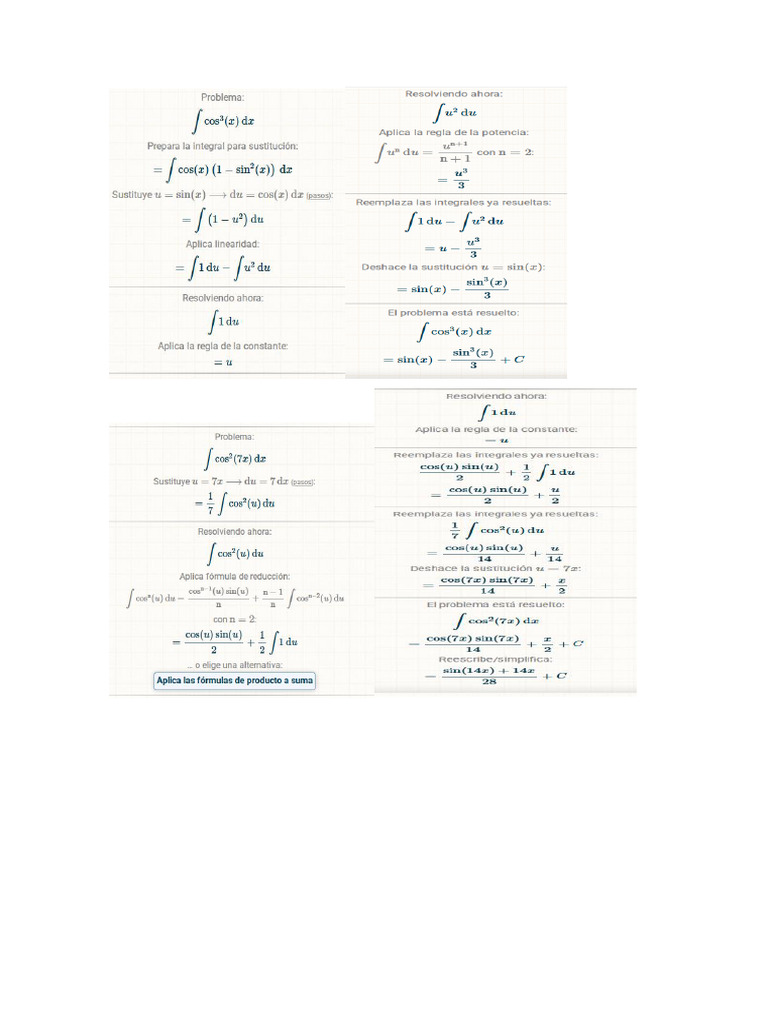 Problema:
∫ cos³(x) dx
Prepara la integral para sustitución:
= ∫ cos(x) (1 − sin²(x)) dx
Sustituye u = sin(x) ⟶ du = cos(x) dx (pasos):
= ∫ (1 − u²) du
Aplica linearidad:
= ∫ 1 du − ∫ u² du
Resolviendo ahora:
∫ 1 du
Aplica la regla de la constante:
= u
Resolviendo ahora:
∫ u² du
Aplica la regla de la potencia:
∫ uⁿ du = uⁿ⁺¹/(n + 1) con n = 2:
= u³/3
Reemplaza las integrales ya resueltas:
∫ 1 du − ∫ u² du
= u − u³/3
Deshace la sustitución u = sin(x):
= sin(x) − sin³(x)/3
El problema está resuelto:
∫ cos³(x) dx
= sin(x) − sin³(x)/3 + C
Problema:
∫ cos²(7x) dx
Sustituye u = 7x ⟶ du = 7 dx (pasos):
= 1/7 ∫ cos²(u) du
Resolviendo ahora:
∫ cos²(u) du
Aplica fórmula de reducción:
∫ cosⁿ(u) du = cosⁿ⁻¹(u) sin(u)/n + (n − 1)/n ∫ cosⁿ⁻²(u) du
con n = 2:
= cos(u) sin(u)/2 + 1/2 ∫ 1 du
... o elige una alternativa:
Aplica las fórmulas de producto a suma
Resolviendo ahora:
∫ 1 du
Aplica la regla de la constante:
= u
Reemplaza las integrales ya resueltas:
cos(u) sin(u)/2 + 1/2 ∫ 1 du
= cos(u) sin(u)/2 + u/2
Reemplaza las integrales ya resueltas:
1/7 ∫ cos²(u) du
= cos(u) sin(u)/14 + u/14
Deshace la sustitución u = 7x:
= cos(7x) sin(7x)/14 + x/2
El problema está resuelto:
∫ cos²(7x) dx
= cos(7x) sin(7x)/14 + x/2 + C
Reescribe/simplifica:
= (sin(14x) + 14x)/28 + C